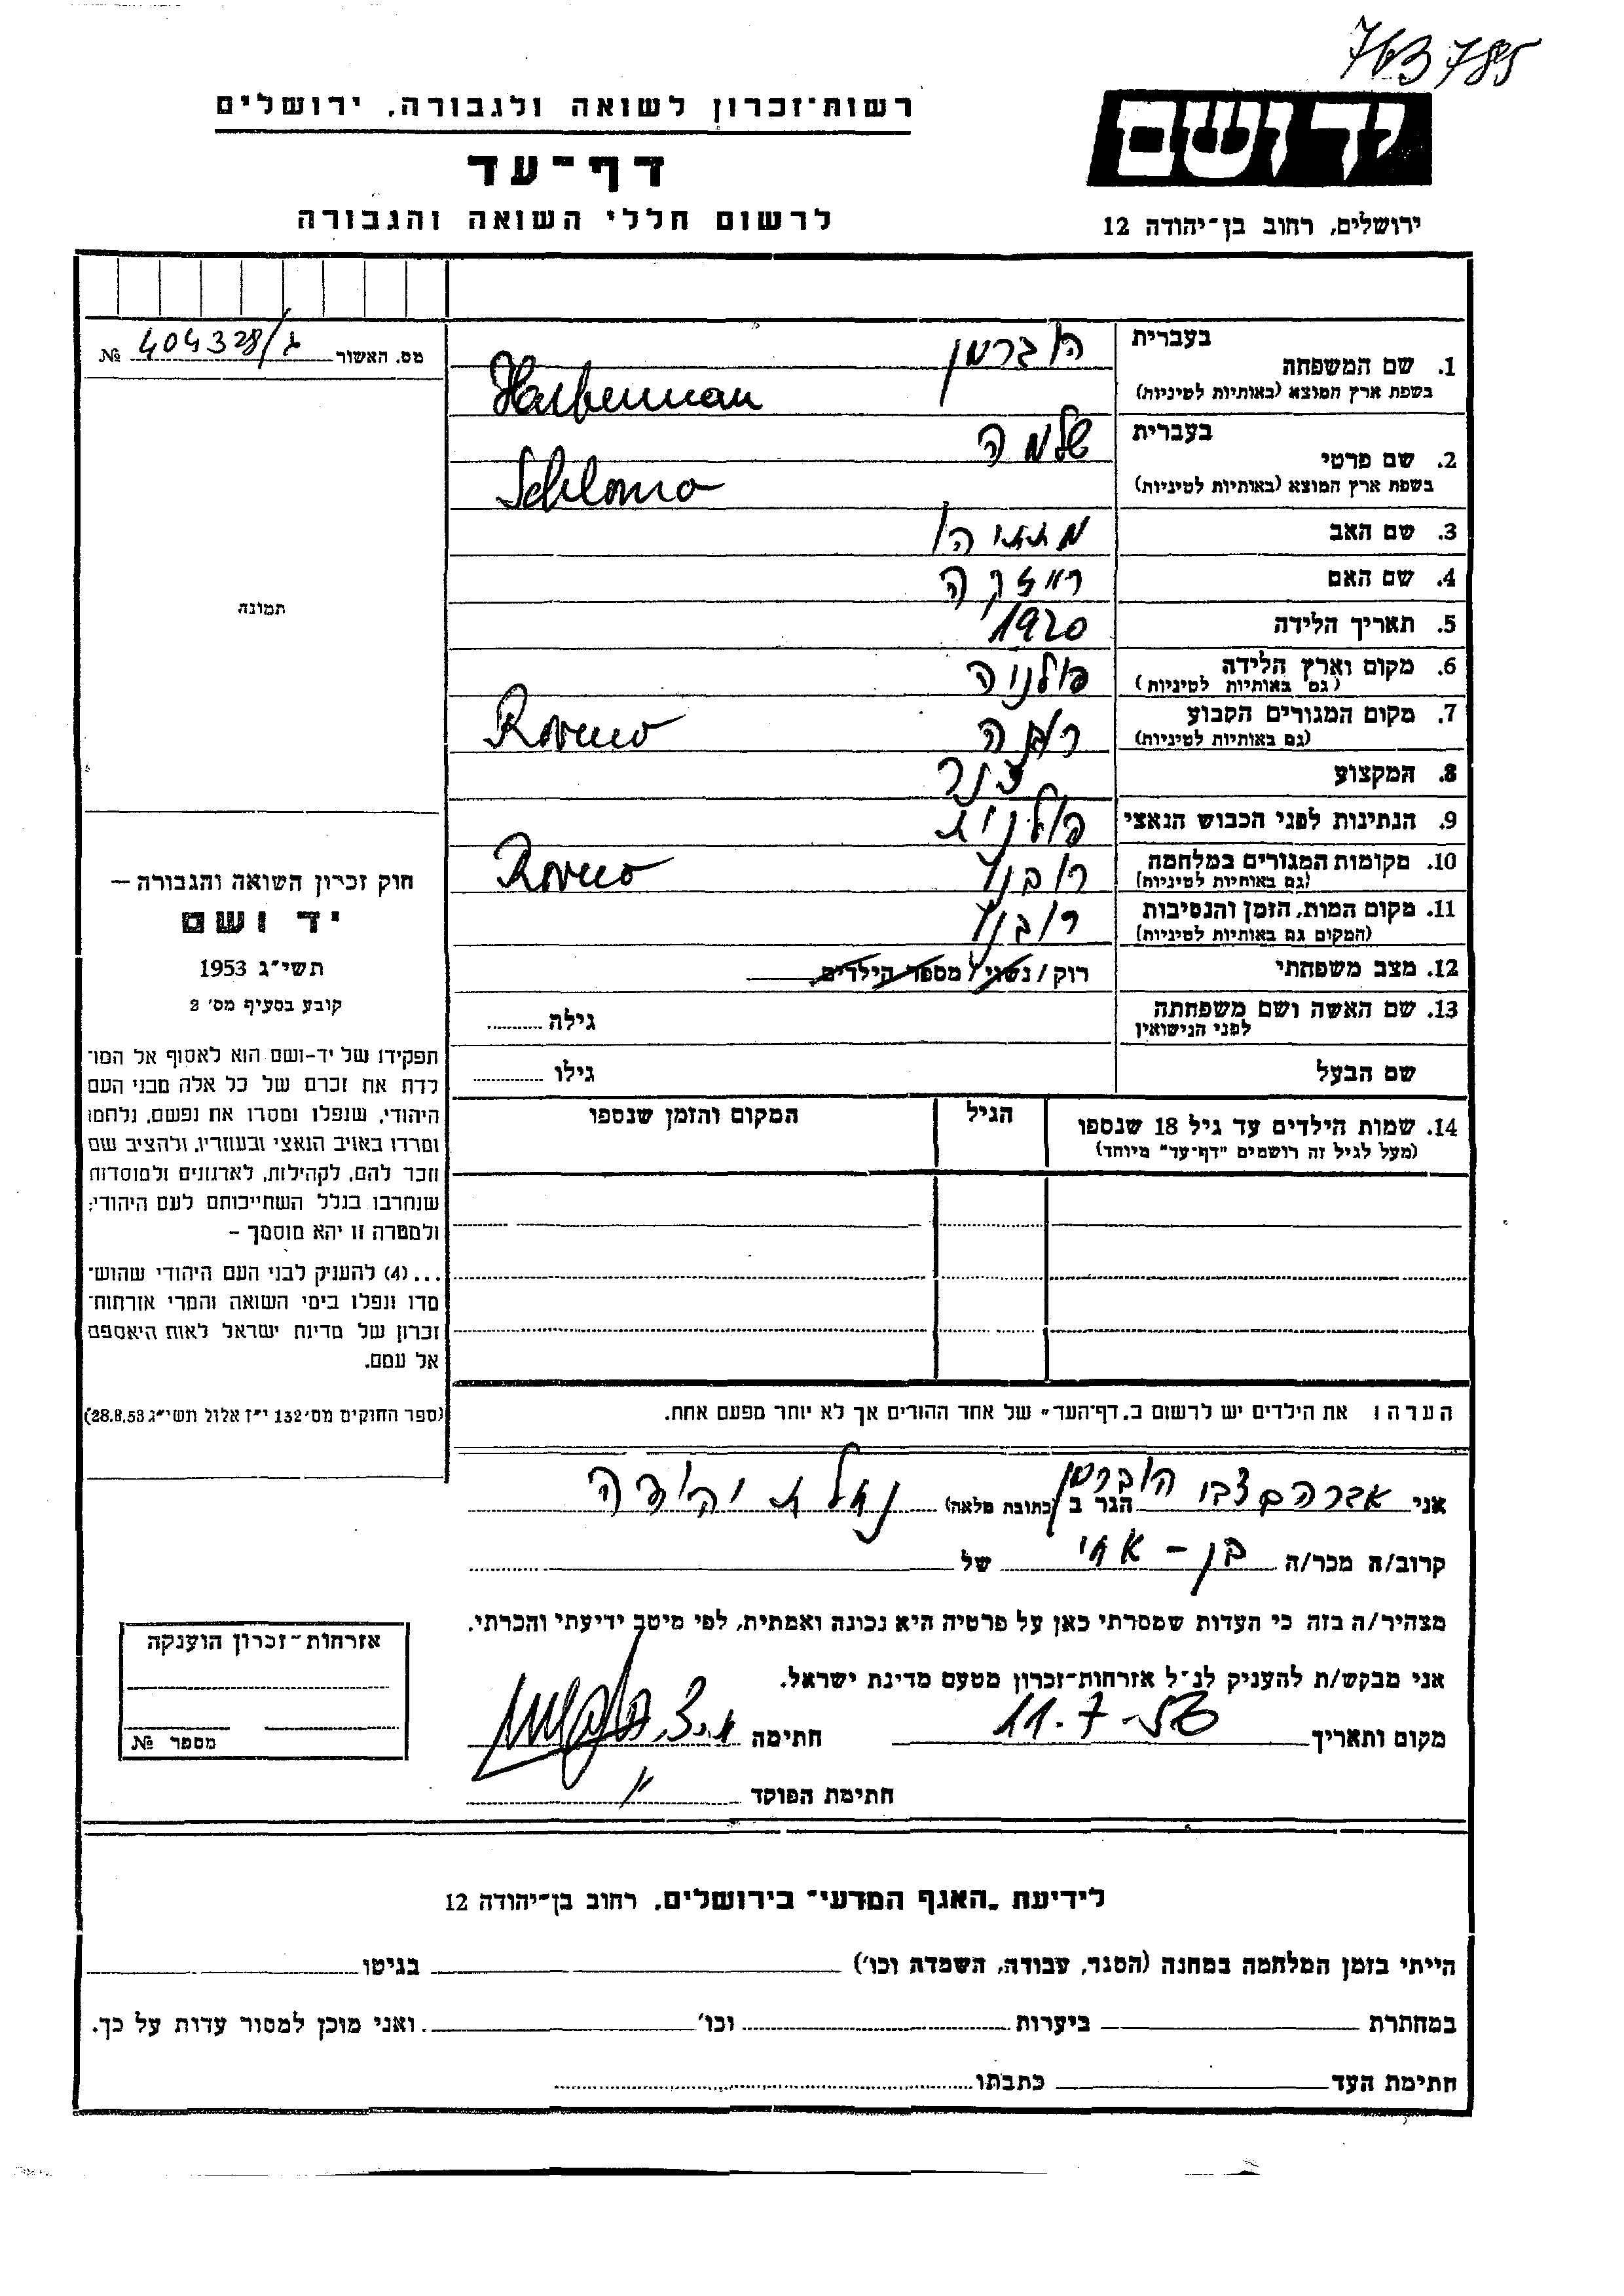 763785
יד ושם
רשות־זכרון לשואה ולגבורה, ירושלים
דף־עד
לרשום חללי השואה והגבורה
ירושלים, רחוב בן־יהודה 12
מס. האשור 404328/ג №
תמונה
חוק זכרון השואה והגבורה —
יד ושם
תשי״ג 1953
קובע בסעיף מס׳ 2
תפקידו של יד-ושם הוא לאסוף אל המו־
לדת את זכרם של כל אלה מבני העם
היהודי, שנפלו ומסרו את נפשם, נלחמו
ומרדו באויב הנאצי ובעוזריו, ולהציב שם
וזכר להם, לקהילות, לארגונים ולמוסדות
שנחרבו בגלל השתייכותם לעם היהודי;
ולמטרה זו יהא מוסמך –
...(4) להעניק לבני העם היהודי שהוש־
מדו ונפלו בימי השואה והמרי אזרחות־
זכרון של מדינת ישראל לאות היאספם
אל עמם.
(ספר החוקים מס׳ 132 י״ז אלול תשי״ג 28.8.53)
בעברית הוברמן
1. שם המשפחה
בשפת ארץ המוצא (באותיות לטיניות) Hauberman
בעברית שלמה
2. שם פרטי
בשפת ארץ המוצא (באותיות לטיניות) Schlomo
3. שם האב מתתיהו
4. שם האם
5. תאריך הלידה 1920
6. מקום וארץ הלידה פולניה
(גם באותיות לטיניות)
7. מקום המגורים הקבוע Rovno
(גם באותיות לטיניות)
8. המקצוע
9. הנתינות לפני הכבוש הנאצי פולנית
10. מקומות המגורים במלחמה רובנו Rovno
(גם באותיות לטיניות)
11. מקום המות, הזמן והנסיבות רובנו
(המקום גם באותיות לטיניות)
12. מצב משפחתי רוק / נשוי / מספר הילדים
13. שם האשה ושם משפחתה גילה
לפני הנישואין
שם הבעל גילו
14. שמות הילדים עד גיל 18 שנספו הגיל המקום והזמן שנספו
(מעל לגיל זה רושמים ״דף־עד״ מיוחד)
הערה: את הילדים יש לרשום ב„דף־העד״ של אחד ההורים אך לא יותר מפעם אחת.
אני אברהם צבי הוברמן הגר ב (כתובת מלאה) נחלת יהודה
קרוב/ה מכר/ה בן - אחי של
מצהיר/ה בזה כי העדות שמסרתי כאן על פרטיה היא נכונה ואמתית, לפי מיטב ידיעתי והכרתי.
אני מבקש/ת להעניק לנ״ל אזרחות־זכרון מטעם מדינת ישראל.
מקום ותאריך 11.7- חתימה א.צ. הוברמן
חתימת הפוקד
אזרחות־זכרון הוענקה
מספר №
לידיעת „האגף המדעי״ בירושלים, רחוב בן־יהודה 12
הייתי בזמן המלחמה במחנה (הסגר, עבודה, השמדה וכו׳) בגיטו
במחתרת ביערות וכו׳ ואני מוכן למסור עדות על כך.
חתימת העד כתבתו